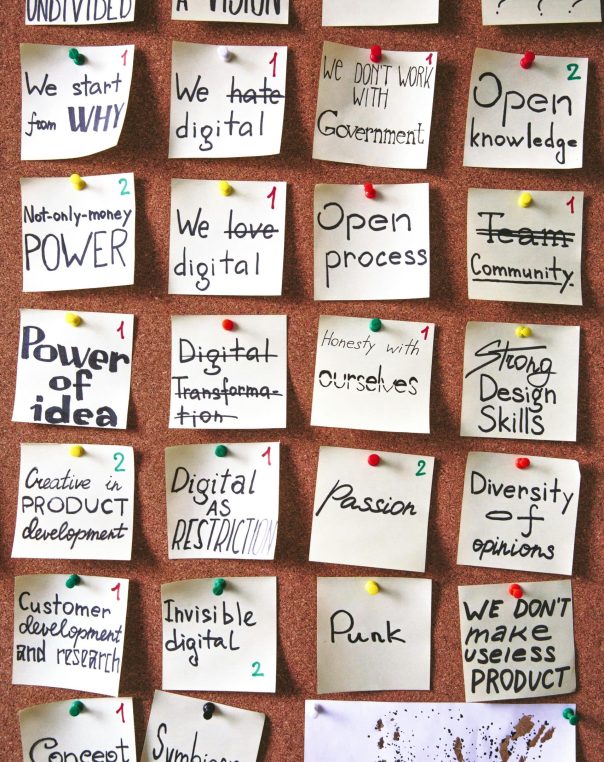 UNDIVIDED
A VISION
? ? ?
1
We start
from WHY
1
We hate
digital
1
WE DON'T WORK
WITH
Government
2
Open
knowledge
2
Not-only-money
POWER
1
We love
digital
Open
process
1
Team
Community.
1
Power
of
idea
Digital
Transforma-
tion
1
Honesty with
ourselves
Strong
Design
Skills
2
Creative in
PRODUCT
development
1
Digital
AS
RESTRICTION
2
Passion
Diversity
of
opinions
1
Customer
development
and research
Invisible
digital
2
Punk
WE DON'T
make
useless
PRODUCT
1
Concept